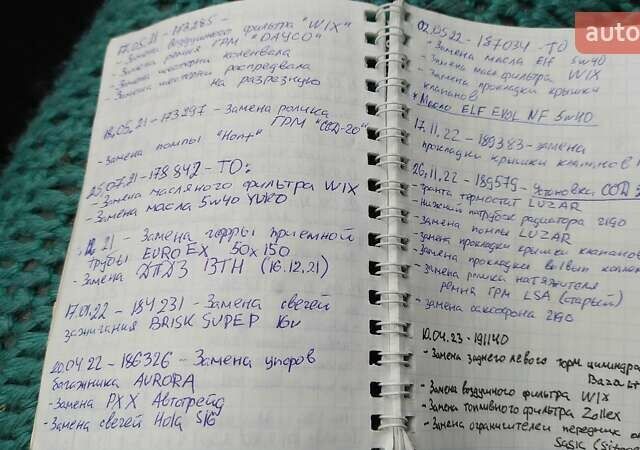 17.05.21 - 173285 -
- Замена Воздушного фильтра "WIX"
- Замена ремня ГРМ "DAYCO"
- Замена шестерни коленвала
- Замена шестерни распредвала
на разрезную
18.05.21 - 173297 - Замена ролика
ГРМ
- Замена помпы "Hort"
25.07.21 - 178842 - ТО:
- Замена масляного фильтра WIX
- Замена масла 5w40 YUKO
21 - Замена гофры приемной
трубы EUROEX 50x150
- Замена ДПДЗ ВТН (16.12.21)
17.01.22 - 184231 - Замена свечей
зажигания BRISK SUPER 16v
20.04.22 - 186326 - Замена упоров
багажника AURORA
- Замена РХХ Автотрейд
- Замена свечей Hola S16
02.05.22 - 187034 - ТО
- Замена масла Elf 5w40
- Замена мас.фильтра WIX
- Замена прокладки крышки
клапанов
* Масло ELF EVOL NF 5w40
17.11.22 - 189383 - замена
прокладки крышки клапанов
26.11.22 - 189579 - Установка
термостат LUZAR
- нижний патрубок радиатора 2190
- замена помпы LUZAR
- замена прокладки крышки клапанов
- замена прокладки
- замена ролика натяжителя
ремня ГРМ LSA (старый)
- замена саксофона 2190
10.04.23 - 191140
- Замена заднего левого торм цилиндра
- Замена воздушного фильтра WIX
- Замена топливного фильтра Zollex
- Замена ограничителей передних
Sasic
auto